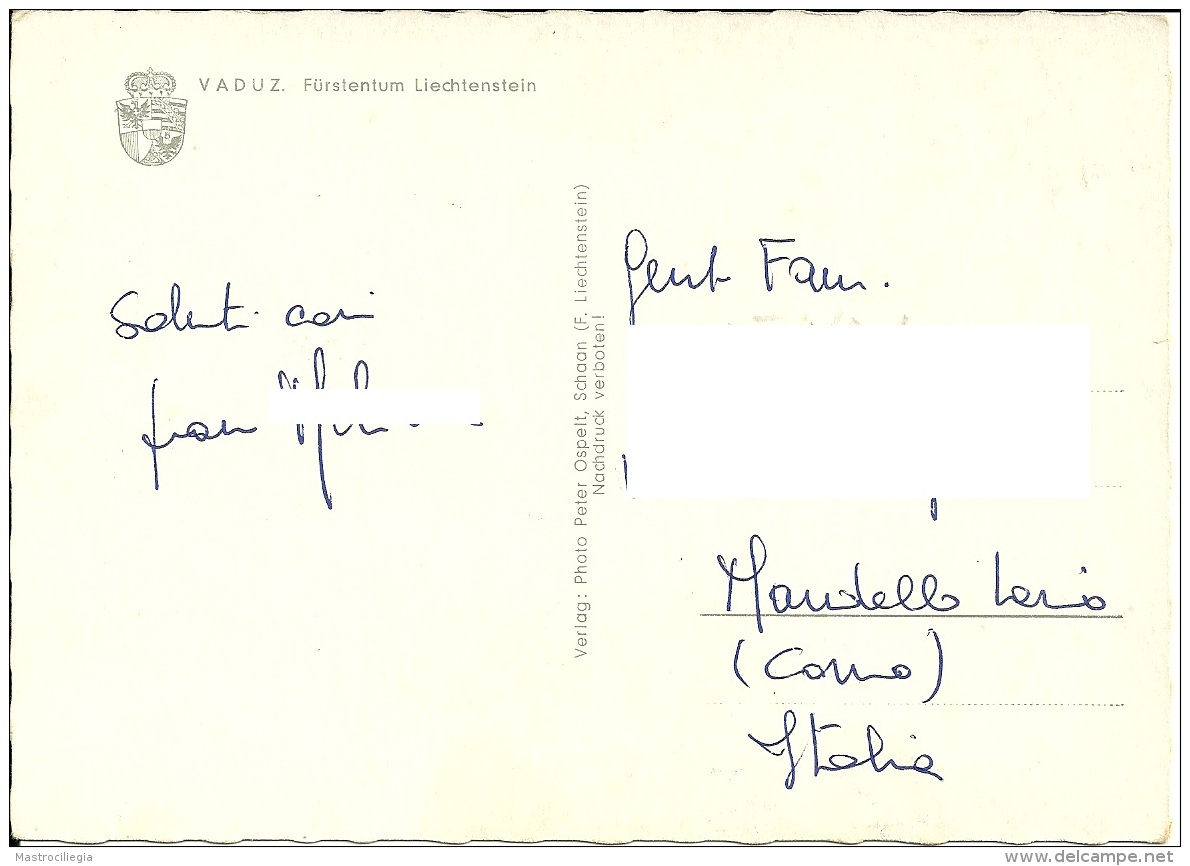 VADUZ. Fürstentum Liechtenstein
Saluti cari
fam
Verlag: Photo Peter Ospelt, Schaan (F. Liechtenstein)
Nachdruck verboten!
Gent Fam.
Mandello Lario
(Como)
Italia
Mastrociliegia
www.delcampe.net